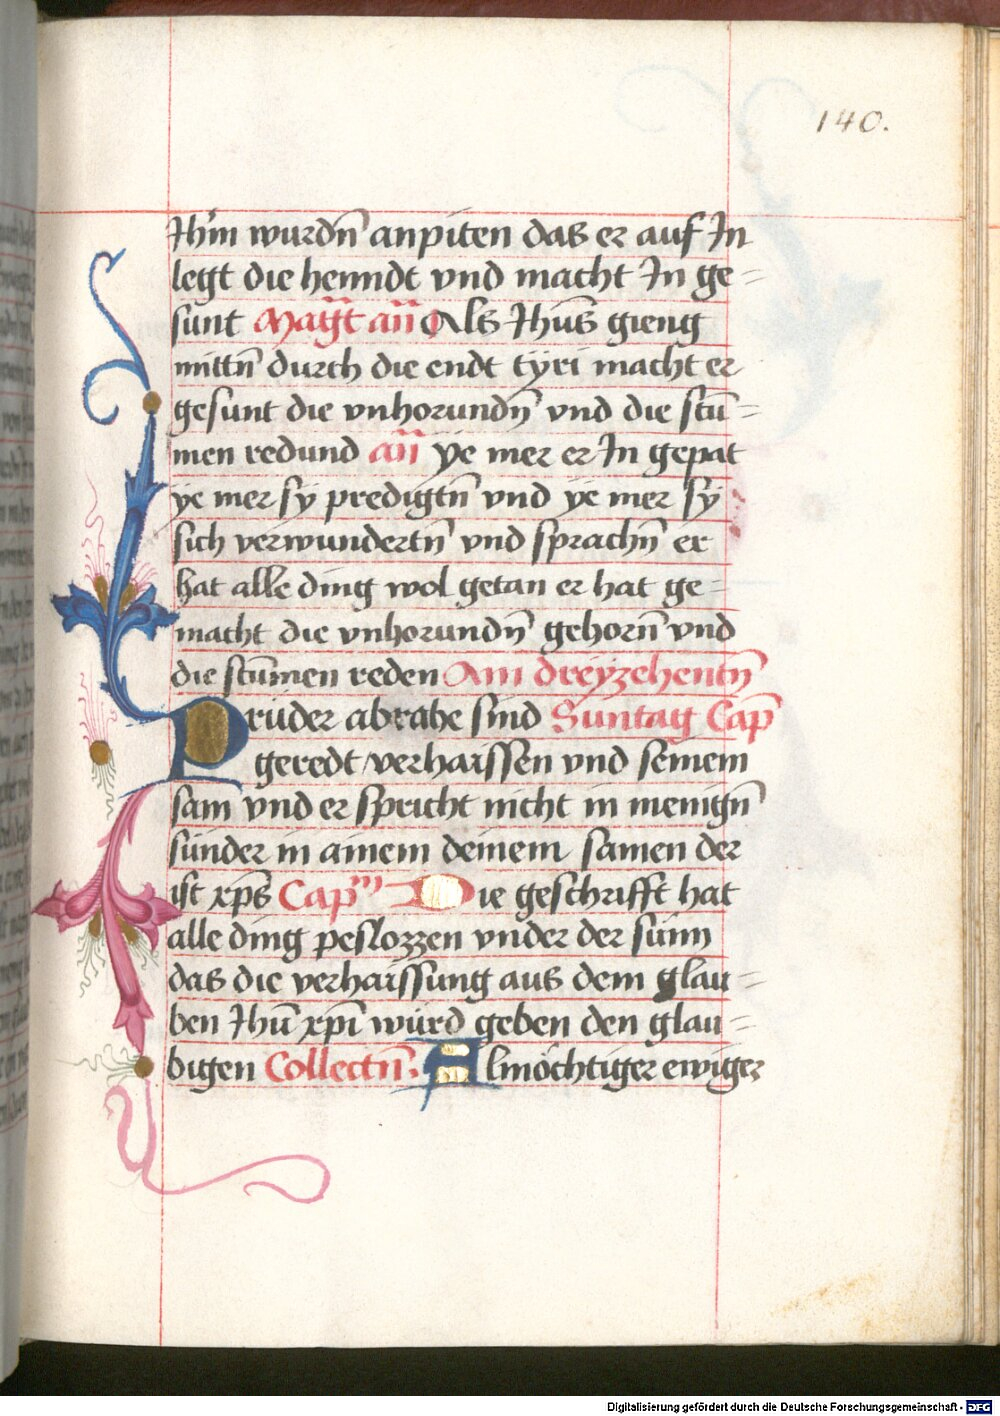 140.
Ihm̄ wurdn̄ anpiten das er auf In
legt die henndt vnd macht In ge=
sunt Mag̃t an̄ Als Ihus gieng
mittn̄ durch die endt tÿri macht er
gesunt die vnhorundn̄ vnd die stū=
men redund an̄ ye mer er In gepat
ye mer sÿ predigtn̄ vnd ÿe mer sÿ
sich verwundertn̄ vnd sprachn̄ er
hat alle ding wol getan er hat ge=
macht die vnhorundn̄ gehorn̄ vnd
die stūmen reden Am dreÿzehentn̄
Prüder abrahe sind Suntag Cap̄
geredt verhaissen vnd seinem
sam vnd er spricht nicht in menign̄
sünder in ainem deinem samen der
ist xp̄s Cap̄ Die geschrifft hat
alle ding peslozzen vnder der sünn
das die verhaissung aus dem glau=
ben Ihū xp̄i würd geben den glau=
bigen Collectn̄. Almöchtiger ewiger
Digitalisierung gefördert durch die Deutsche Forschungsgemeinschaft - DFG